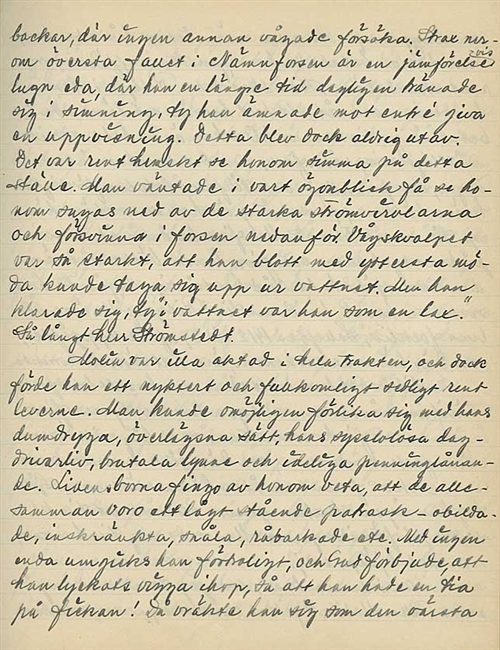 backar, där ingen annan vågade försöka. Strax ner-
om översta fallet i Nämnforsen är en jämförelsevis
lugn eda, där han en längre tid dagligen tränade
sig i simning, ty han ämnade mot entré giva
en uppvisning. Detta blev dock aldrig utav.
Det var rent hemskt se honom simma på detta
ställe. Man väntade i vart ögonblick få se ho-
nom sugas ned av de starka strömvirvlarna
och försvinna i forsen nedanför. Vågskvalpet
var så starkt, att han blott med yttersta mö-
da kunde taga sig upp ur vattnet. Men han
klarade sig, ty "i vattnet var han som en lax."
Så långt herr Strömstedt.
Molin var illa aktad i hela trakten, och dock
förde han ett nyktert och fullkomligt sedligt rent
leverne. Man kunde omöjligen förlika sig med hans
dumdryga, överlägsna sätt, hans sysslolösa dag-
drivarliv, brutala lynne och ideliga penninglånan-
de. Lidensborna fingo av honom veta, att de alle-
samman voro ett lågt stående patrask – obilda-
de, inskränkta, snåla, råbarkade etc. Med ingen
enda umgicks han förtroligt, och Gud förbjude, att
han lyckats vigga ihop, så att han hade en tia
på fickan! Då vräkte han sig som den värsta